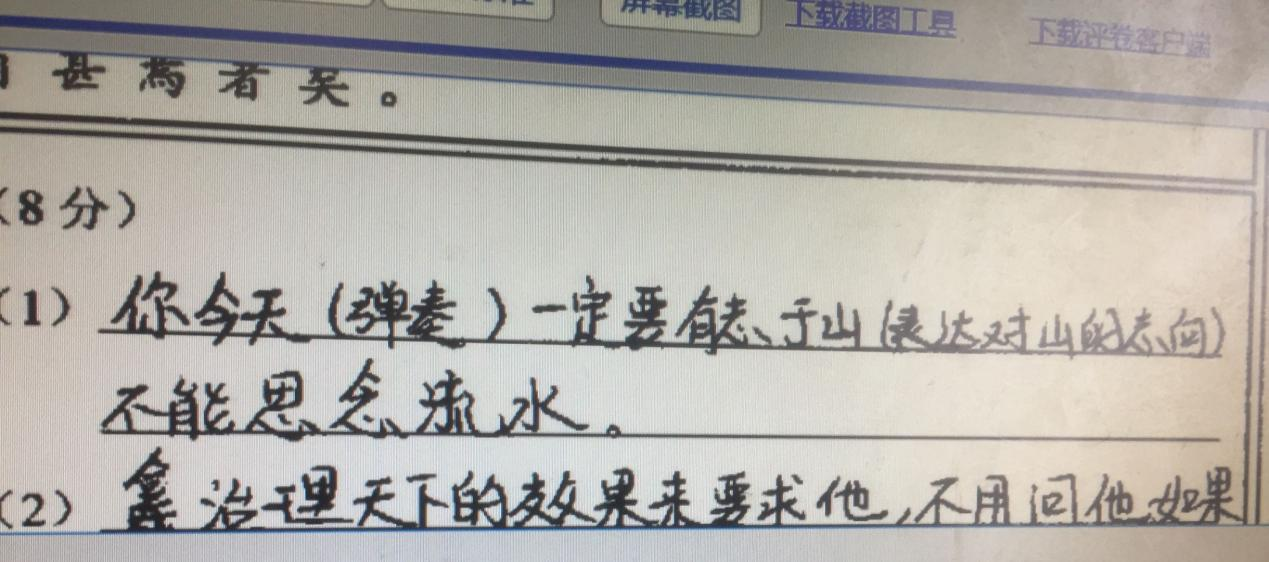 屏幕截图 下载截图工具 下载评卷客户端
甚焉者矣。
(8分)
(1) 你今天(弹奏)一定要有志于山(表达对山的志向)
不能思念流水。
(2) 治理天下的效果来要求他,不用问他如果